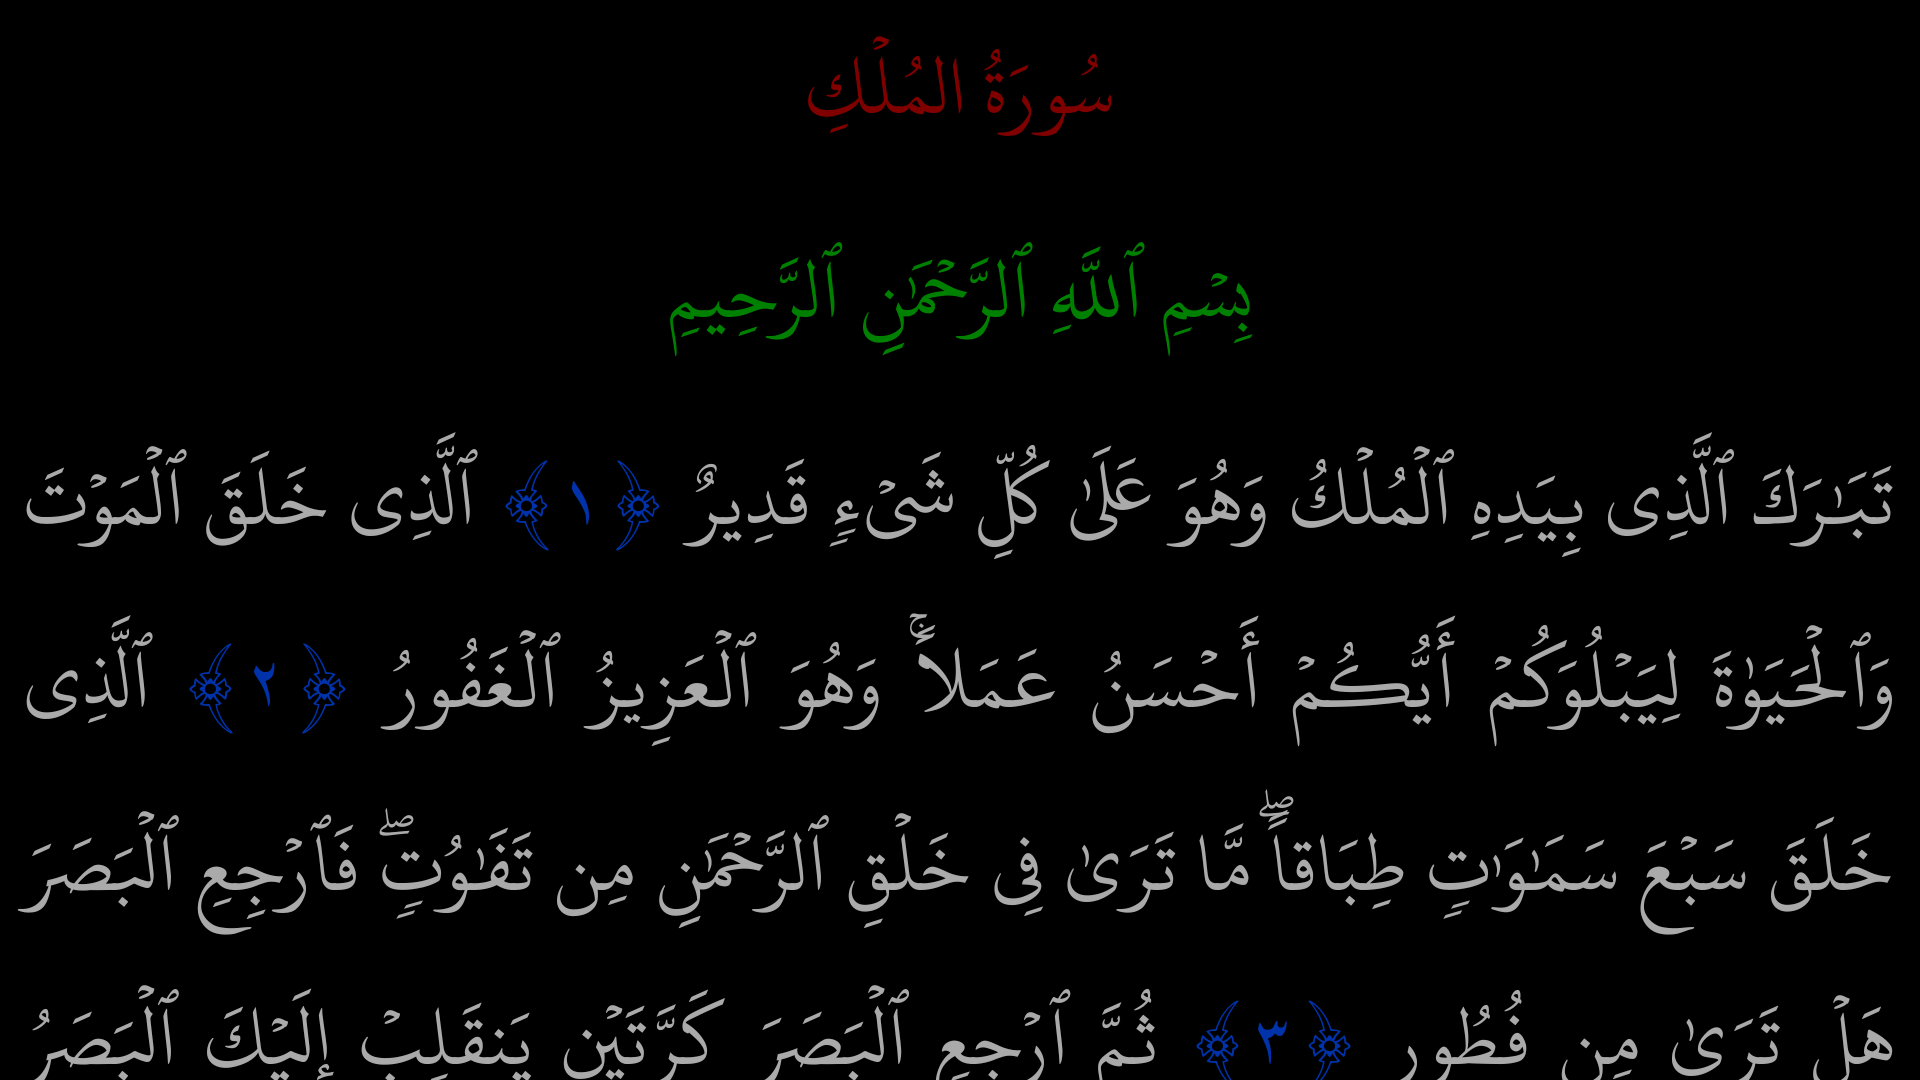 سُورَةُ المُلۡكِ
بِسۡمِ ٱللَّهِ ٱلرَّحۡمَٰنِ ٱلرَّحِيمِ
تَبَـٰرَكَ ٱلَّذِى بِيَدِهِ ٱلۡمُلۡكُ وَهُوَ عَلَىٰ كُلِّ شَىۡءٍ قَدِيرٌ ﴿١﴾ ٱلَّذِى خَلَقَ ٱلۡمَوۡتَ
وَٱلۡحَيَوٰةَ لِيَبۡلُوَكُمۡ أَيُّكُمۡ أَحۡسَنُ عَمَلاً‌ۚ وَهُوَ ٱلۡعَزِيزُ ٱلۡغَفُورُ ﴿٢﴾ ٱلَّذِى
خَلَقَ سَبۡعَ سَمَـٰوَٲتٍ طِبَاقاً‌ۖ مَّا تَرَىٰ فِى خَلۡقِ ٱلرَّحۡمَـٰنِ مِن تَفَـٰوُتٍ‌ۖ فَٱرۡجِعِ ٱلۡبَصَرَ
هَلۡ تَرَىٰ مِن فُطُورٍ ﴿٣﴾ ثُمَّ ٱرۡجِعِ ٱلۡبَصَرَ كَرَّتَيۡنِ يَنقَلِبۡ إِلَيۡكَ ٱلۡبَصَرُ